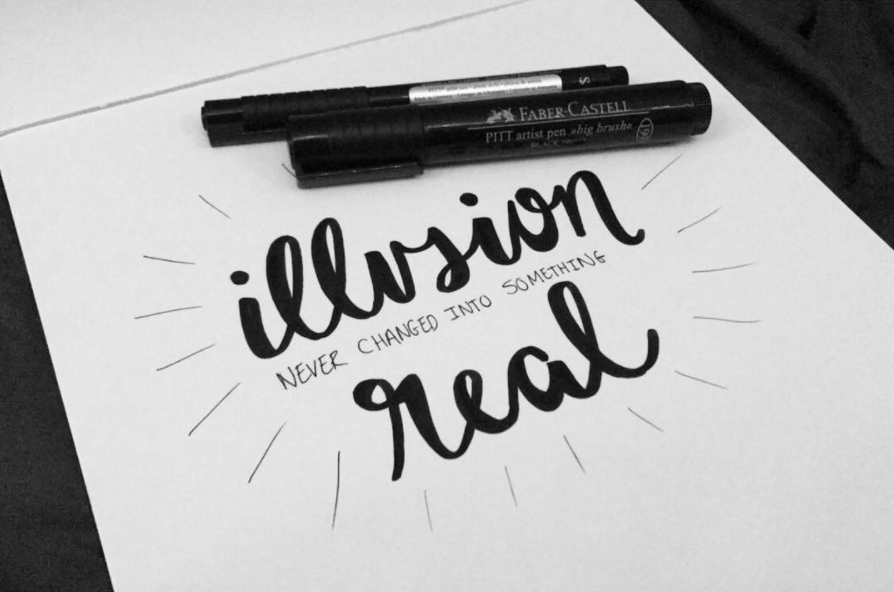 FABER-CASTELL
PITT artist pen »big brush«
BLACK
illusion
NEVER CHANGED INTO SOMETHING
real